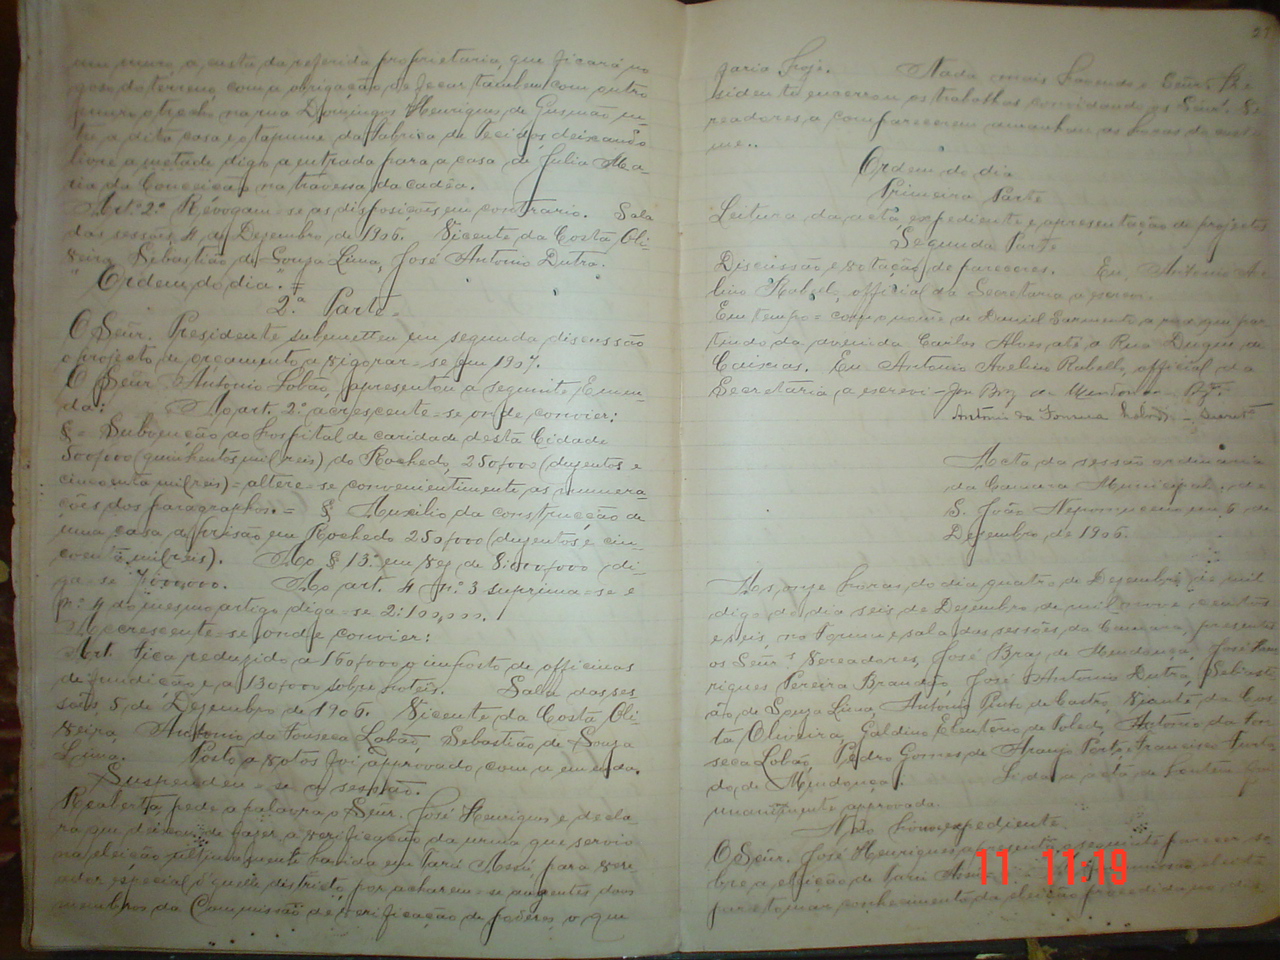 um muro, a custa da referida proprietaria, que ficará no
goso do terreno, com a obrigação de fecar tambem com outro
muro o trecho na rua Domingos Henriques de Gusmão en-
tre a dita casa e o tapume da Fabrica de Tecidos, deixando
livre a metade digo a entrada para a casa de Julia Ma-
ria da Conceição na travessa da cadêa.
Art. 2º Revogam-se as disposições em contrario. Sala
das sessões, 4 de Dezembro de 1906. Vicente da Costa Oli-
veira, Sebastião de Souza Lima, José Antonio Dutra.
"Ordem do dia."
2ª Parte
O Señr. Presidente submetteu em segunda discussão
o projecto de orçamento a vigorar-se em 1907.
O Señr Antonio Lobão, apresentou a seguinte Emen-
da: Ao art. 2º accrescente-se onde convier:
§ = Subvenção ao hospital de caridade desta Cidade
500$000 (quinhentos mil reis) do Rochedo, 250$000 (duzentos e
cincoenta mil reis) = altere-se convenientimente as numera-
ções dos paragraphos. = § Auxilio da construcção de
uma casa de prisão em Rochedo 250$000 (duzentos e cin-
coenta mil reis). Ao § 13º em vez de 8:000$000 di-
ga-se 7:000,000. Ao art. 4 nº 3 suprima-se e
nº 4 do mesmo artigo diga-se 2:100,000.
Accrescente-se onde convier:
Art. Fica reduzido a 160$000 o imposto de officinas
de fundição e a 130$000 sobre hoteis. Sala das ses
sões, 5 de Dezembro de 1906. Vicente da Costa Oli
veira, Antonio da Fonseca Lobão, Sebastião de Souza
Lima. Posto a votos foi approvado com a emenda.
Suspendeu-se a sessão.
Reaberta, pede a palavra o Señr. José Henriques e decla
ra que deixou de fazer a verificação da urna que servio
na eleição ultimamente havida em Tarú Assú, para vere-
ador especial d'quelle districto por acharem-se augentes dous
membros da Commissão de verificação de poderes, o que
27
faria hoje. Nada mais havendo o Señr. Pre
sidente encerrou os trabalhos convidando os Senrs. Ve
readores a comparecerem amanhan as horas do costu
me..
Ordem do dia
Primeira Parte
Leitura da acta expediente e apresentação de projectos
Segunda Parte
Discussão e votação de pareceres. Eu, Antonio Ave
lino Rabello, official da Secretaria a escrevi.
Em tempo = com o nome de Daniel Sarmento a rua que par
tindo da avenida Carlos Alves até a Rua Duque de
Caxias. Eu Antonio Avelino Rabello, official da
Secretaria a escrevi - José Braz de Mendonça
Antonio da Fonseca Lobão - Secretº
Acta da sessão ordinaria
da Camara Municipal, de
S. João Nepomuceno em 6 de
Dezembro de 1906.
As onze horas do dia quatro de Dezembro de mil
digo do dia seis de Dezembro de mil nove centos
e seis, no Forum e sala das sessões da Camara, presentes
os Señrs Vereadores, José Braz de Mendonça, José Hen
riques Pereira Brandão, José Antonio Dutra, Sebasti
ão de Souza Lima, Antonio Pinto de Castro, Vicente da Cos
ta Oliveira, Galdino Eleuterio de Toledo, Antonio da Fon
seca Lobão, Pedro Gomes de Araujo Porto, Francisco Furta
do de Mendonça. Lida a acta de hontem foi
unanimente approvada.
Não houve expediente.
O Señr. José Henriques apresenta o seguinte parecer so
bre a eleição de Tarú Assú: - Commissão eleita
para tomar conhecimento da eleição procedida no dia
11 11:19